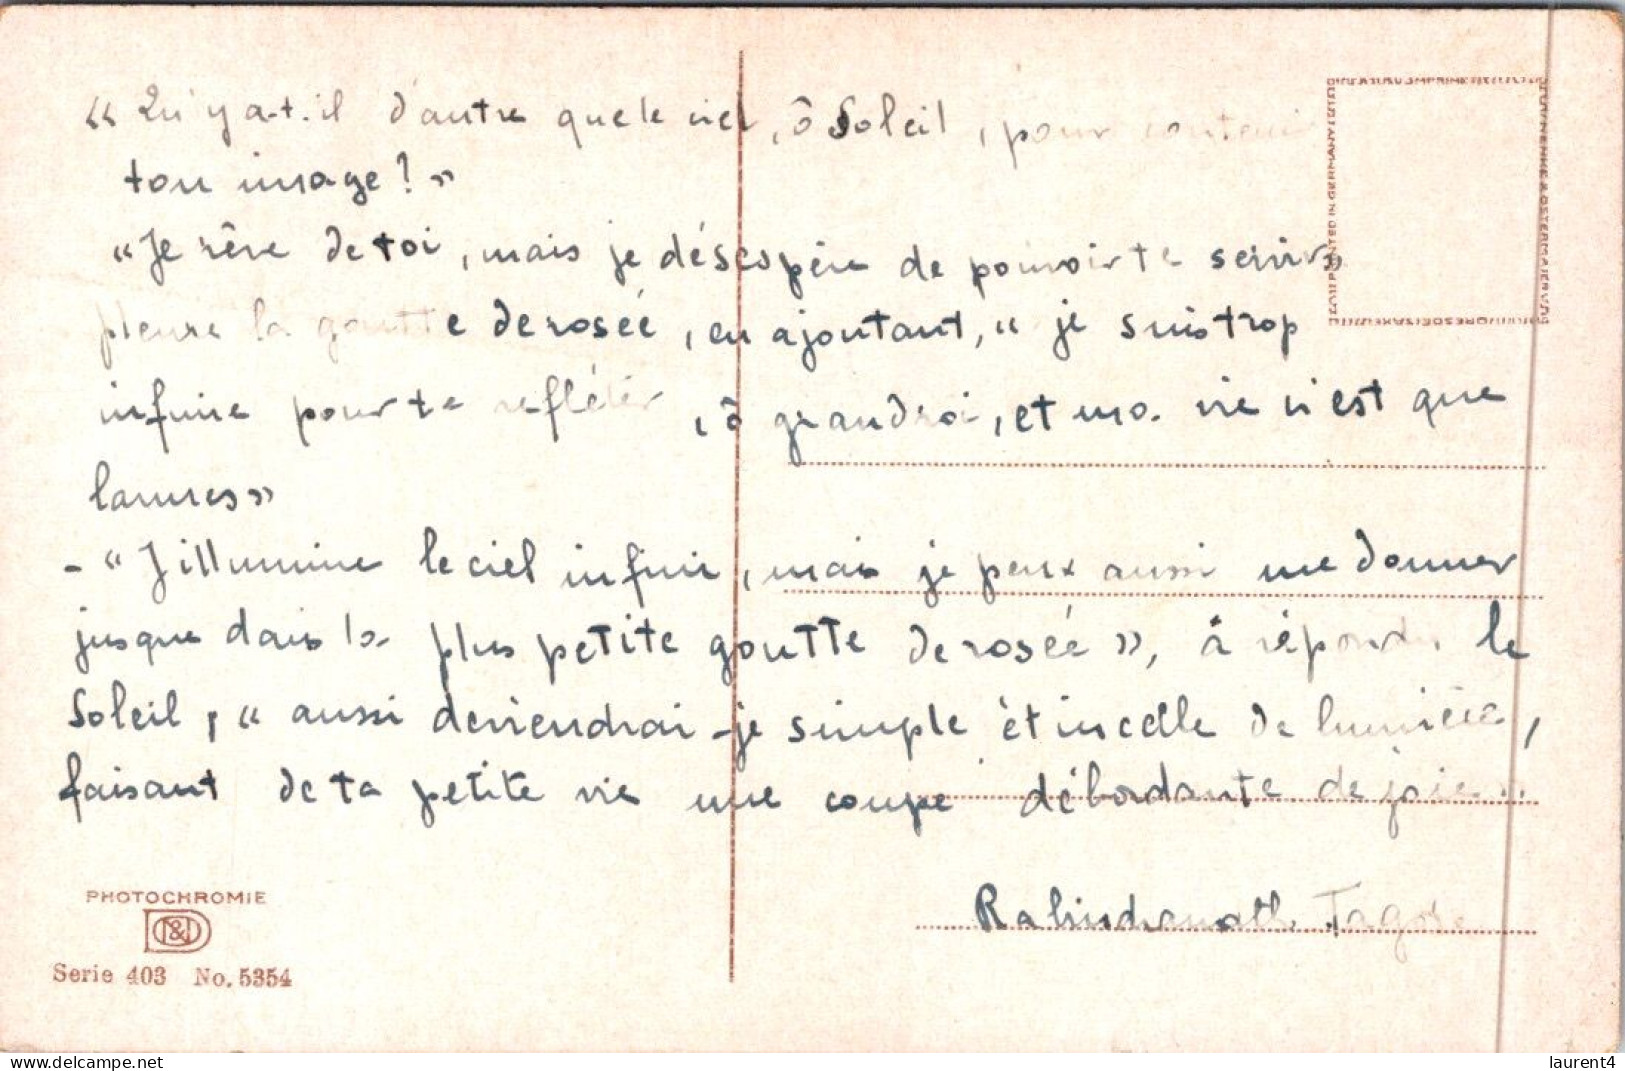 « Qu'y a-t-il d'autre que le ciel, ô Soleil, pour contenir
ton image ? »
« Je rêve de toi, mais je désespère de pouvoir te servir »
pleure la goutte de rosée, en ajoutant, « je suis trop
infime pour te refléter, ô grand roi, et ma vie n'est que
larmes »
- « J'illumine le ciel infini, mais je peux aussi me donner
jusque dans la plus petite goutte de rosée », a répondu le
Soleil, « aussi deviendrai-je simple étincelle de lumière,
faisant de ta petite vie une coupe débordante de joie..
Rabindranath Tagore
PHOTOCHROMIE
Serie 403 No. 5354
delcampe.net
laurent4